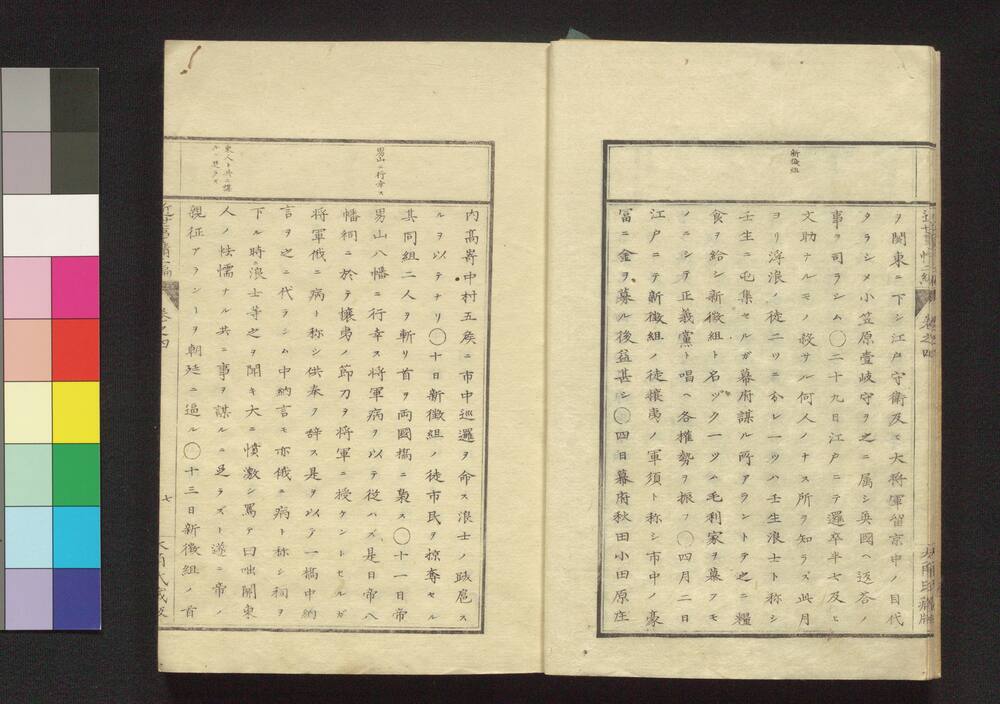 新徴組
ヲ関東ニ下シ江戸守衛及ヒ大将軍留京中ノ目代
タラシメ小笠原壹岐守ヲ之ニ属シ英國ヘ返答ノ
事ヲ司ラシム〇二十九日江戸ニテ邏卒半七及ヒ
文助ナルモノ殺サル何人ノナス所ヲ知ラズ此月
ヨリ浮浪ノ徒二ツニ分レ一ツハ壬生浪士ト称シ
壬生ニ屯集セルガ幕府謀ル所アラントテ之ニ糧
食ヲ給シ新徴組ト名ヅク一ツハ毛利家ヲ慕フモ
ノニシテ正義黨ト唱ヘ各權勢ヲ振フ〇四月二日
江戸ニテ新徴組ノ徒攘夷ノ軍須ト称シ市中ノ豪
冨ニ金ヲ募ル後益甚シ〇四日幕府秋田小田原庄
男山ニ行幸ス
東人ト共ニ謀ルニ足ラズ
内高嵜中村五矦ニ市中巡邏ヲ命ス浪士ノ跋扈ス
ルヲ以テナリ〇十日新徴組ノ徒市民ヲ掠奪セル
其同組二人ヲ斬リ首ヲ両國橋ニ梟ス〇十一日帝
男山八幡ニ行幸ス将軍病ヲ以テ從ハズ是日帝八
幡祠ニ於テ攘夷ノ節刀ヲ将軍ニ授ケントセルガ
将軍俄ニ病ト称シ供奉ヲ辞ス是ヲ以テ一橋中納
言ヲ之ニ代ラシム中納言モ亦俄ニ病ト称シ祠ヲ
下ル時ニ浪士等之ヲ聞キ大ニ憤激シ罵テ曰咄関東
人ノ怯懦ナル共ニ事ヲ謀ルニ足ラズト遂ニ帝ノ
親征アランヿヲ朝廷ニ逼ル〇十三日新徴組ノ首
卷之四
七